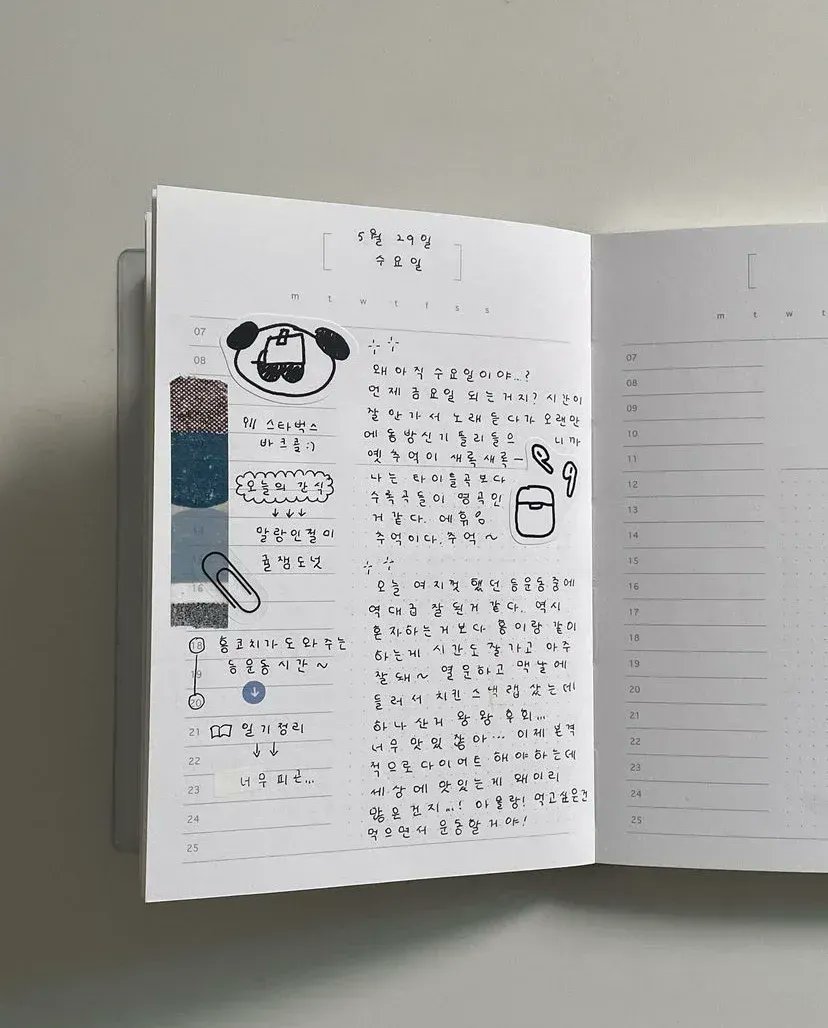 5월 29일
수요일
m t w t f s s
07
08
스타벅스
바크롤:)
오늘의 간식
↓↓↓
말랑인절미
꿀잼도넛
16
18
홍코치가 도와주는
19
등운동시간~
20
21
일기정리
22
↓↓
23
너무피곤...
24
25
왜 아직 수요일이야..?
언제 금요일 되는거지? 시간이
잘 안가서 노래 듣다가 오랜만
에 동방신기 들으 니까
옛 추억이 새록새록-
나는 타이틀곡보다
수록곡들이 명곡인
거같다. 에휴
추억이다. 추억~
오늘 여지껏 했던 등운동중에
역대급 잘 된거 같다. 역시
혼자하는거보다 홍이랑 같이
하는게 시간도 잘가고 아주
잘돼~ 열운하고 맥날에
들러서 치킨 스낵랩 샀는데
하나 산거 왕왕 후회...
너무 맛있잖아... 이제 본격
적으로 다이어트 해야하는데
세상에 맛있는게 왜이리
많은건지...! 아몰랑! 먹고싶은건
먹으면서 운동할거야!
m t w
07
08
09
10
11
12
13
14
15
16
17
18
19
20
21
22
23
24
25